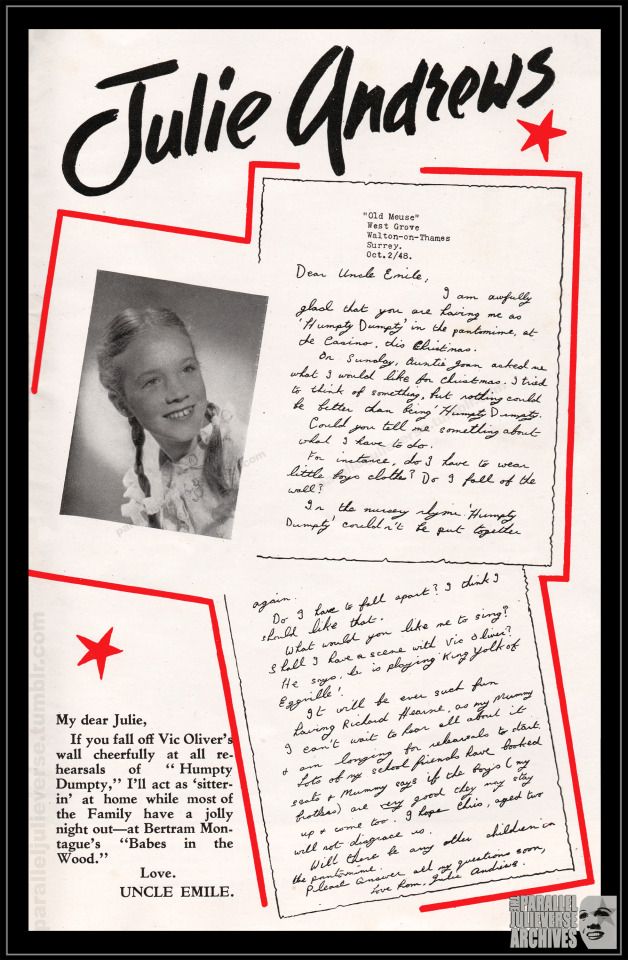 Julie Andrews
"Old Meuse"
West Grove
Walton-on-Thames
Surrey.
Oct.2/48.
Dear Uncle Emile,
I am awfully
glad that you are having me as
'Humpty Dumpty' in the pantomime, at
the Casino, this Christmas.
On Sunday, Auntie Joan asked me
what I would like for christmas. I tried
to think of something, but nothing could
be better than being 'Humpty Dumpty.
Could you tell me something about
what I have to do.
For instance, do I have to wear
little boys clothes? Do I fall of the
wall?
In the nursery rhyme 'Humpty
Dumpty' couldn't be put together
again.
Do I have to fall apart? I think I
should like that.
What would you like me to sing?
Shall I have a scene with Vic Oliver?
He says, he is playing 'King Yolk of
Eggville'.
It will be ever such fun
having Richard Hearne, as my Mummy
I can't wait to hear all about it
& am longing for rehearsals to start.
Lots of my school friends have booked
seats & Mummy says if the boys (my
brothers) are very good they may stay
up & come too. I hope Chis, aged two
will not disgrace us.
Will there be any other children in
the pantomime.
Please answer all my questions soon,
Love from, Julie Andrews.
My dear Julie,
If you fall off Vic Oliver's
wall cheerfully at all re-
hearsals of "Humpty
Dumpty," I'll act as 'sitter-
in' at home while most of
the Family have a jolly
night out—at Bertram Mon-
tague's "Babes in the
Wood."
Love.
UNCLE EMILE.
paralleljulieverse.tumblr.com
THE PARALLEL
JULIEVERSE
ARCHIVES